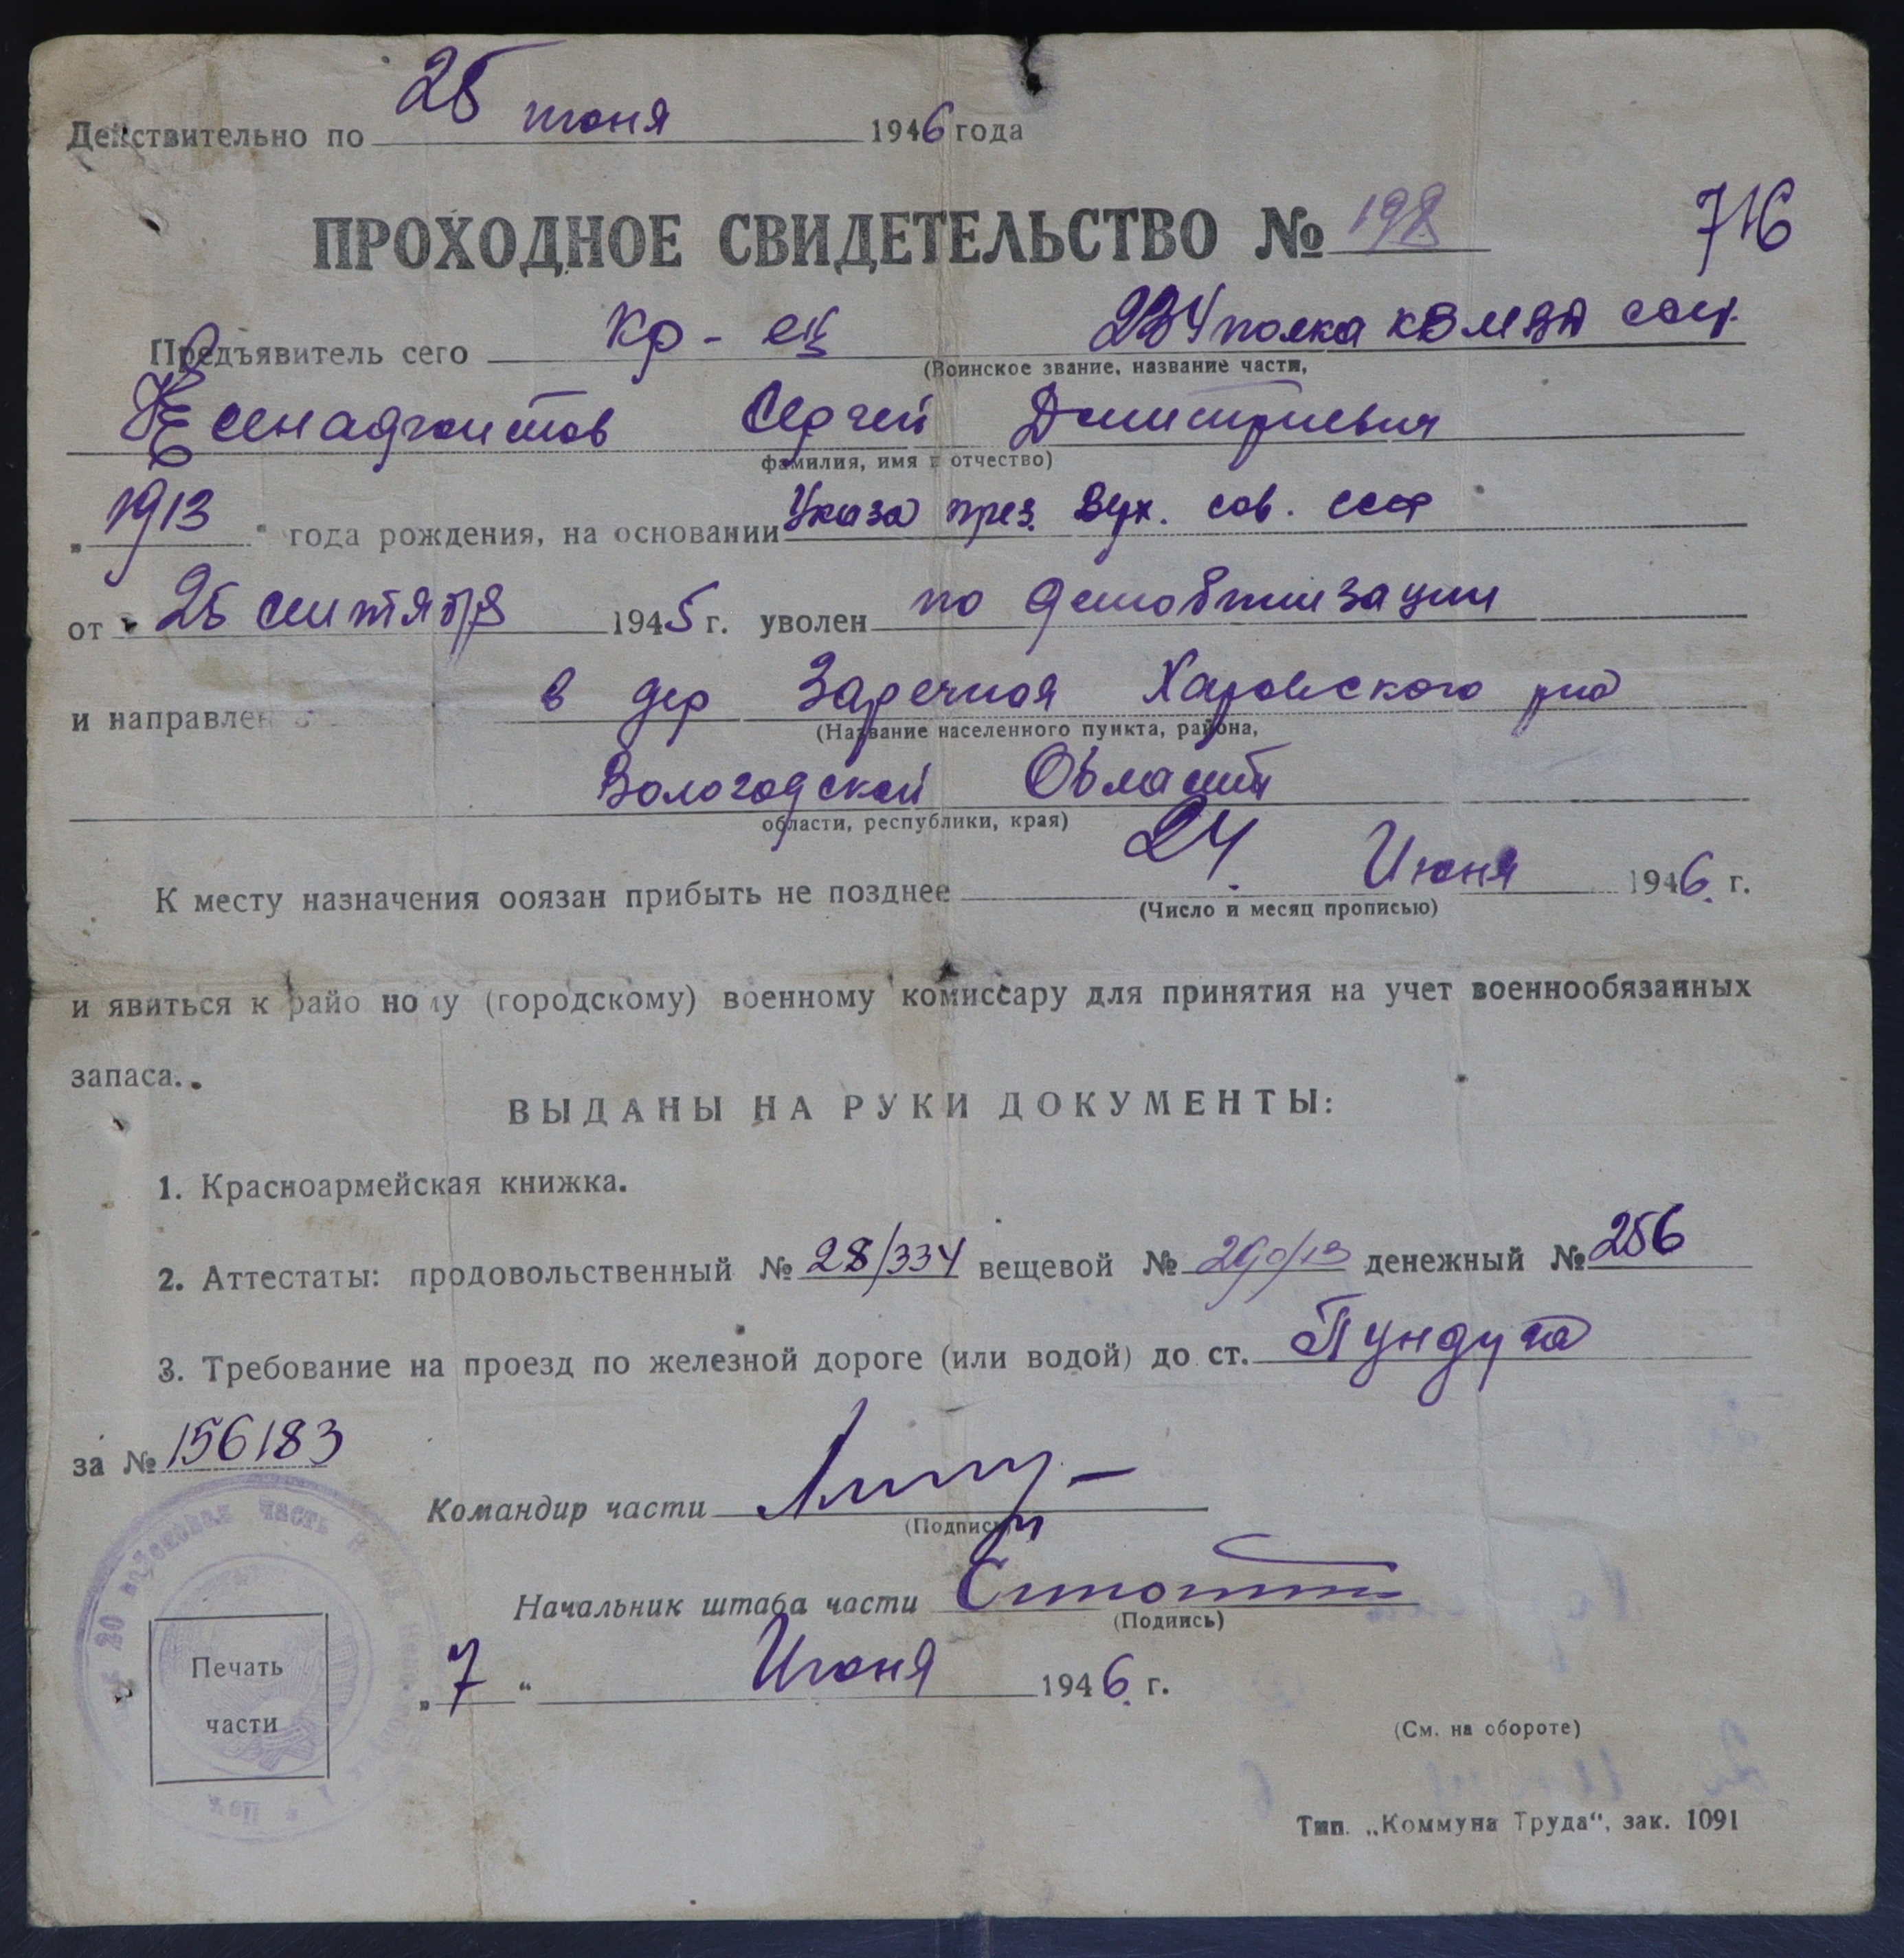 Действительно по 25 июня 1946 года
ПРОХОДНОЕ СВИДЕТЕЛЬСТВО № 198 716
Предъявитель сего кр-ец 234 полка КВ МВД ссср
(Воинское звание, название части,
Сергей Дмитриевич
фамилия, имя и отчество)
„1913“ года рождения, на основании Указа през. Верх. сов. ссср
от 25 сентября 1945 г. уволен по демобилизации
и направлен в дер Заречная Харовского р-на
(Название населенного пункта, района,
Вологодской Области
области, республики, края)
К месту назначения обязан прибыть не позднее 24 Июня 1946 г.
(Число и месяц прописью)
и явиться к районому (городскому) военному комиссару для принятия на учет военнообязанных
запаса.
ВЫДАНЫ НА РУКИ ДОКУМЕНТЫ:
1. Красноармейская книжка.
2. Аттестаты: продовольственный № 28/334 вещевой № 290/13 денежный № 256
3. Требование на проезд по железной дороге (или водой) до ст. Пундуга
за № 156183
Командир части
(Подпись)
Начальник штаба части
(Подпись)
„7“ Июня 1946 г.
войсковая часть
Печать
части
(См. на обороте)
Тип. „Коммуна Труда“, зак. 1091